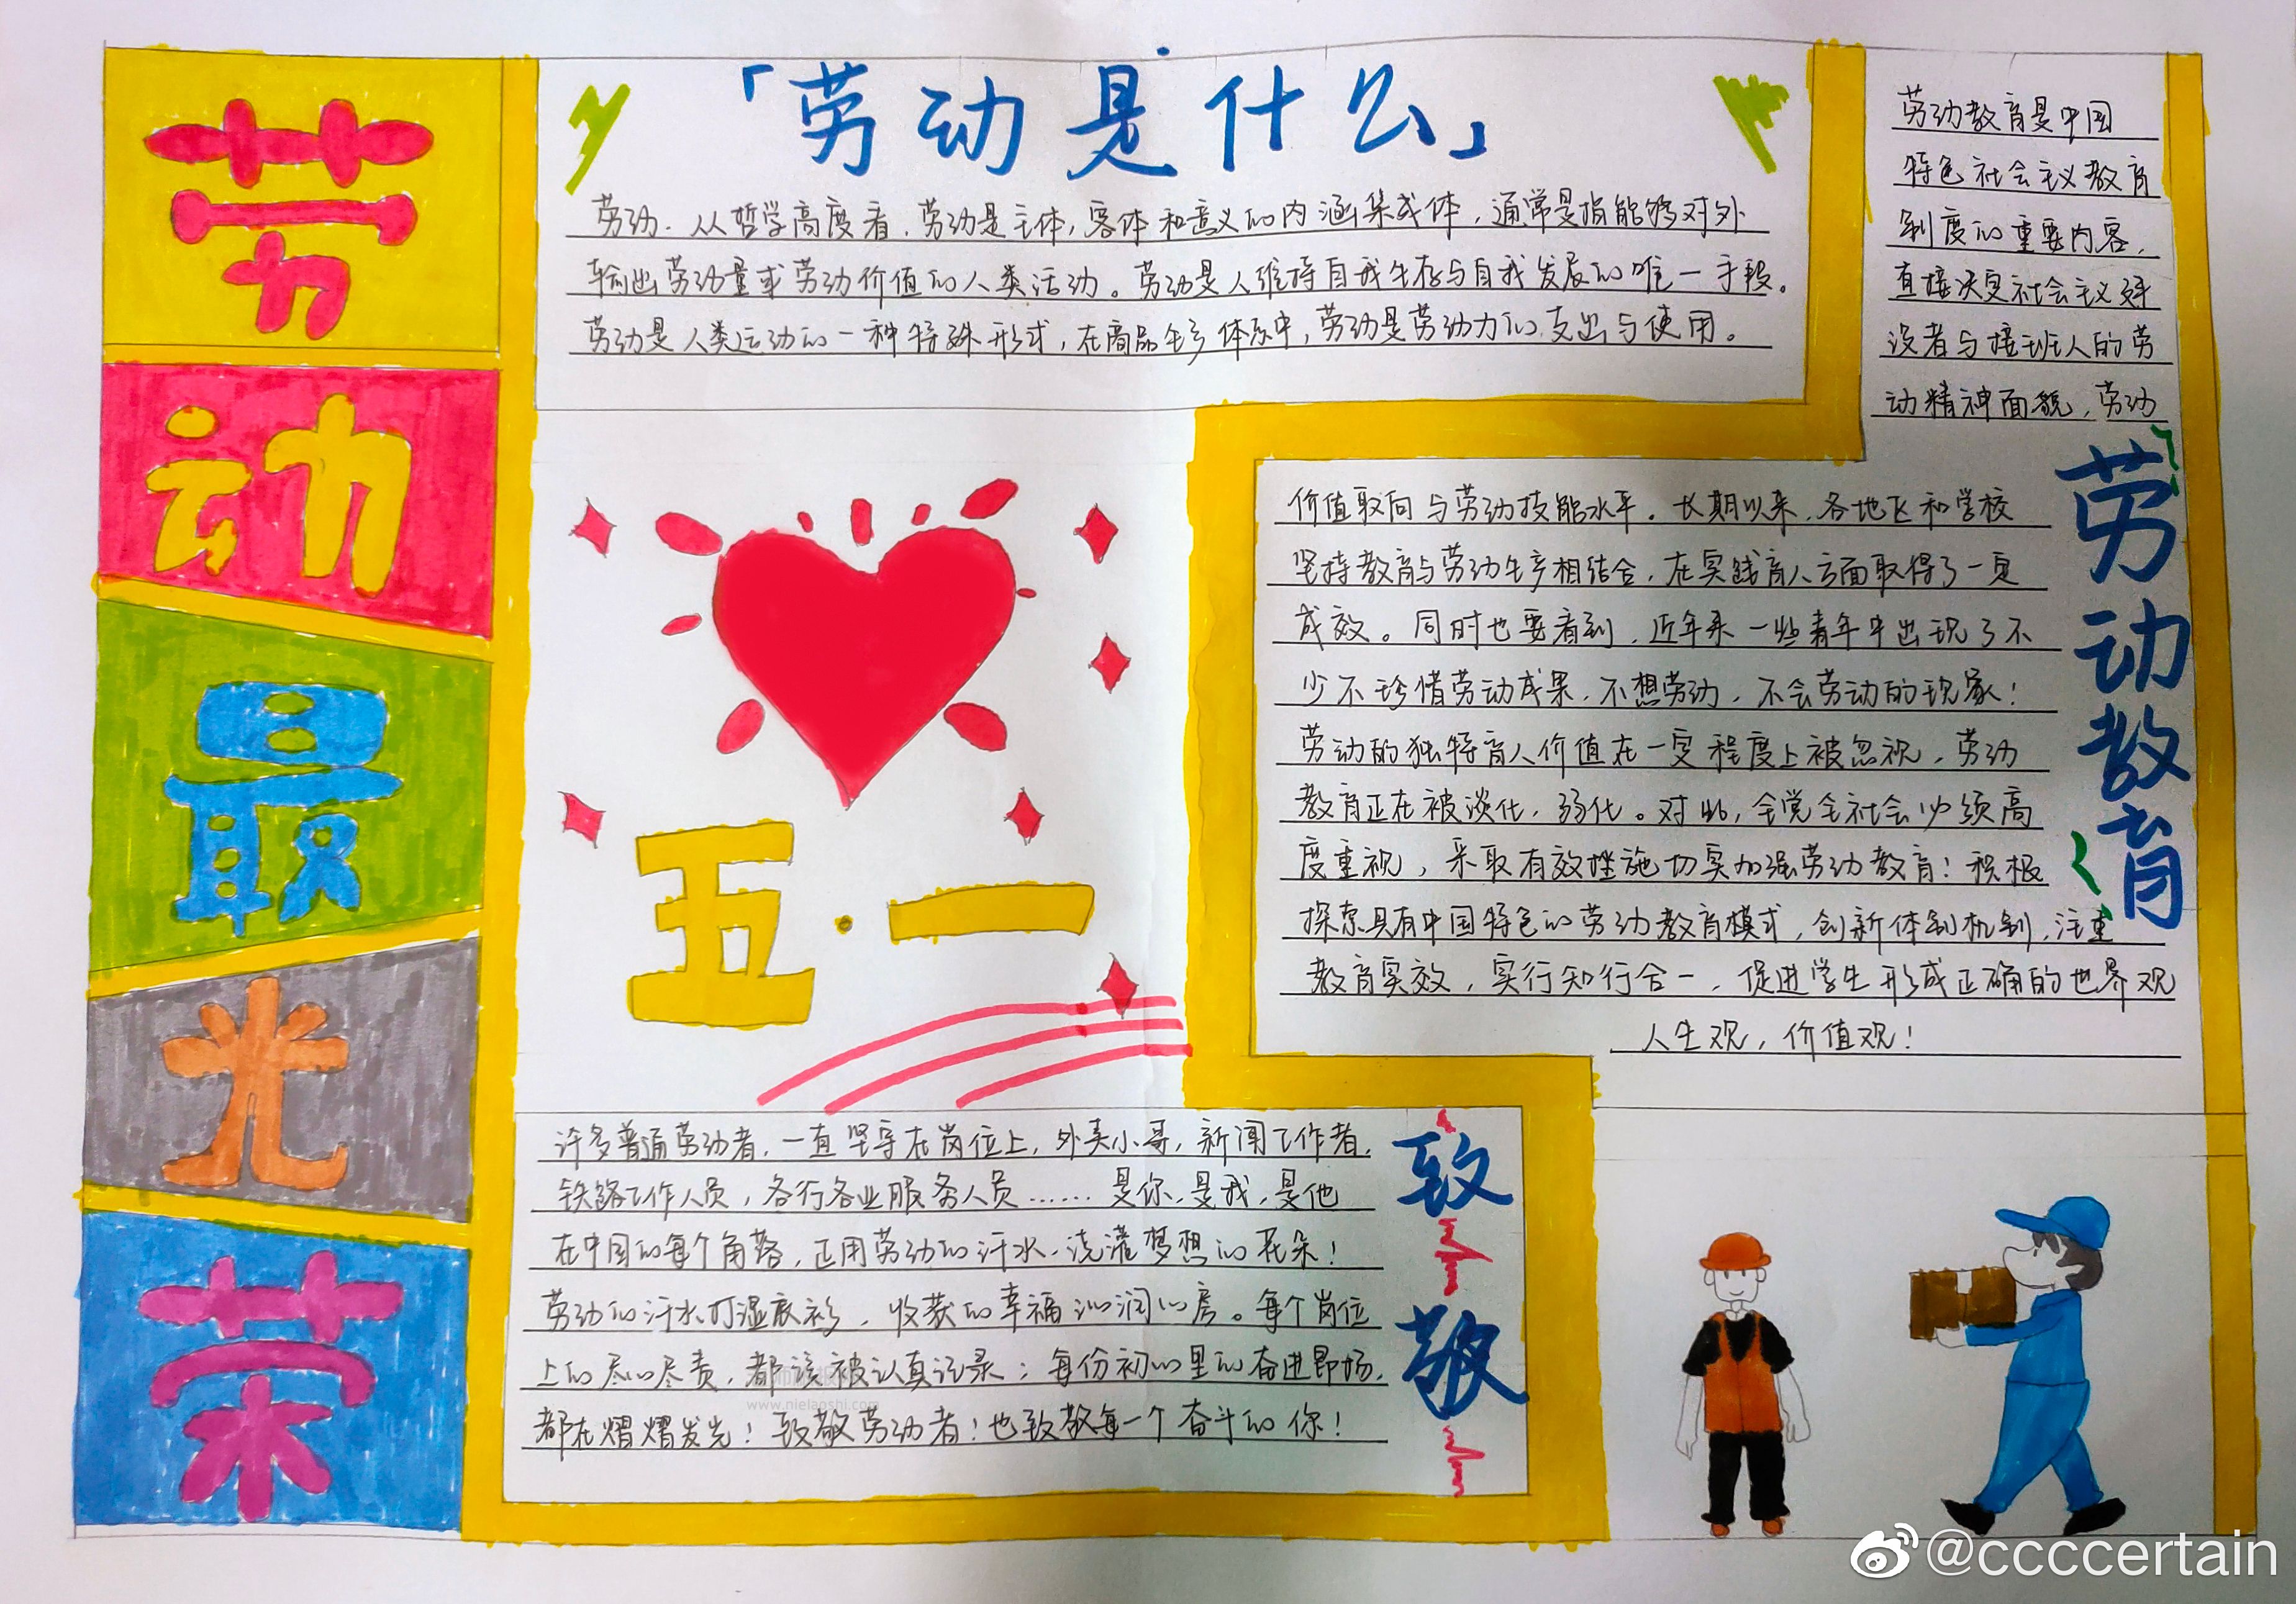 劳
动
最
光
荣
「劳动是什么」
劳动，从哲学高度看，劳动是主体，客体和意义的内涵集成体，通常是指能够对外
输出劳动量或劳动价值的人类活动。劳动是人维持自我生存与自我发展的唯一手段。
劳动是人类运动的一种特殊形式，在商品生产体系中，劳动是劳动力的支出与使用。
五·一
劳动教育是中国
特色社会主义教育
制度的重要内容，
直接决定社会主义建
设者与接班人的劳
动精神面貌，劳动
价值取向与劳动技能水平。长期以来，各地区和学校
坚持教育与劳动生产相结合，在实践育人方面取得了一定
成效。同时也要看到，近年来一些青年中出现了不
少不珍惜劳动成果，不想劳动，不会劳动的现象！
劳动的独特育人价值在一定程度上被忽视，劳动
教育正在被淡化，弱化。对此，全党全社会必须高
度重视，采取有效措施切实加强劳动教育！积极
探索具有中国特色的劳动教育模式，创新体制机制，注重
教育实效，实行知行合一，促进学生形成正确的世界观
人生观，价值观！
劳动教育
许多普通劳动者，一直坚守在岗位上，外卖小哥，新闻工作者，
铁路工作人员，各行各业服务人员……是你，是我，是他
在中国的每个角落，正用劳动的汗水，浇灌梦想的花朵！
劳动的汗水打湿衣衫，收获的幸福沁润心房。每个岗位
上的尽心尽责，都该被认真记录；每份初心里的奋进昂扬，
都在熠熠发光！致敬劳动者！也致敬每一个奋斗的你！
致敬
www.nielaoshi.com
@ccccertain